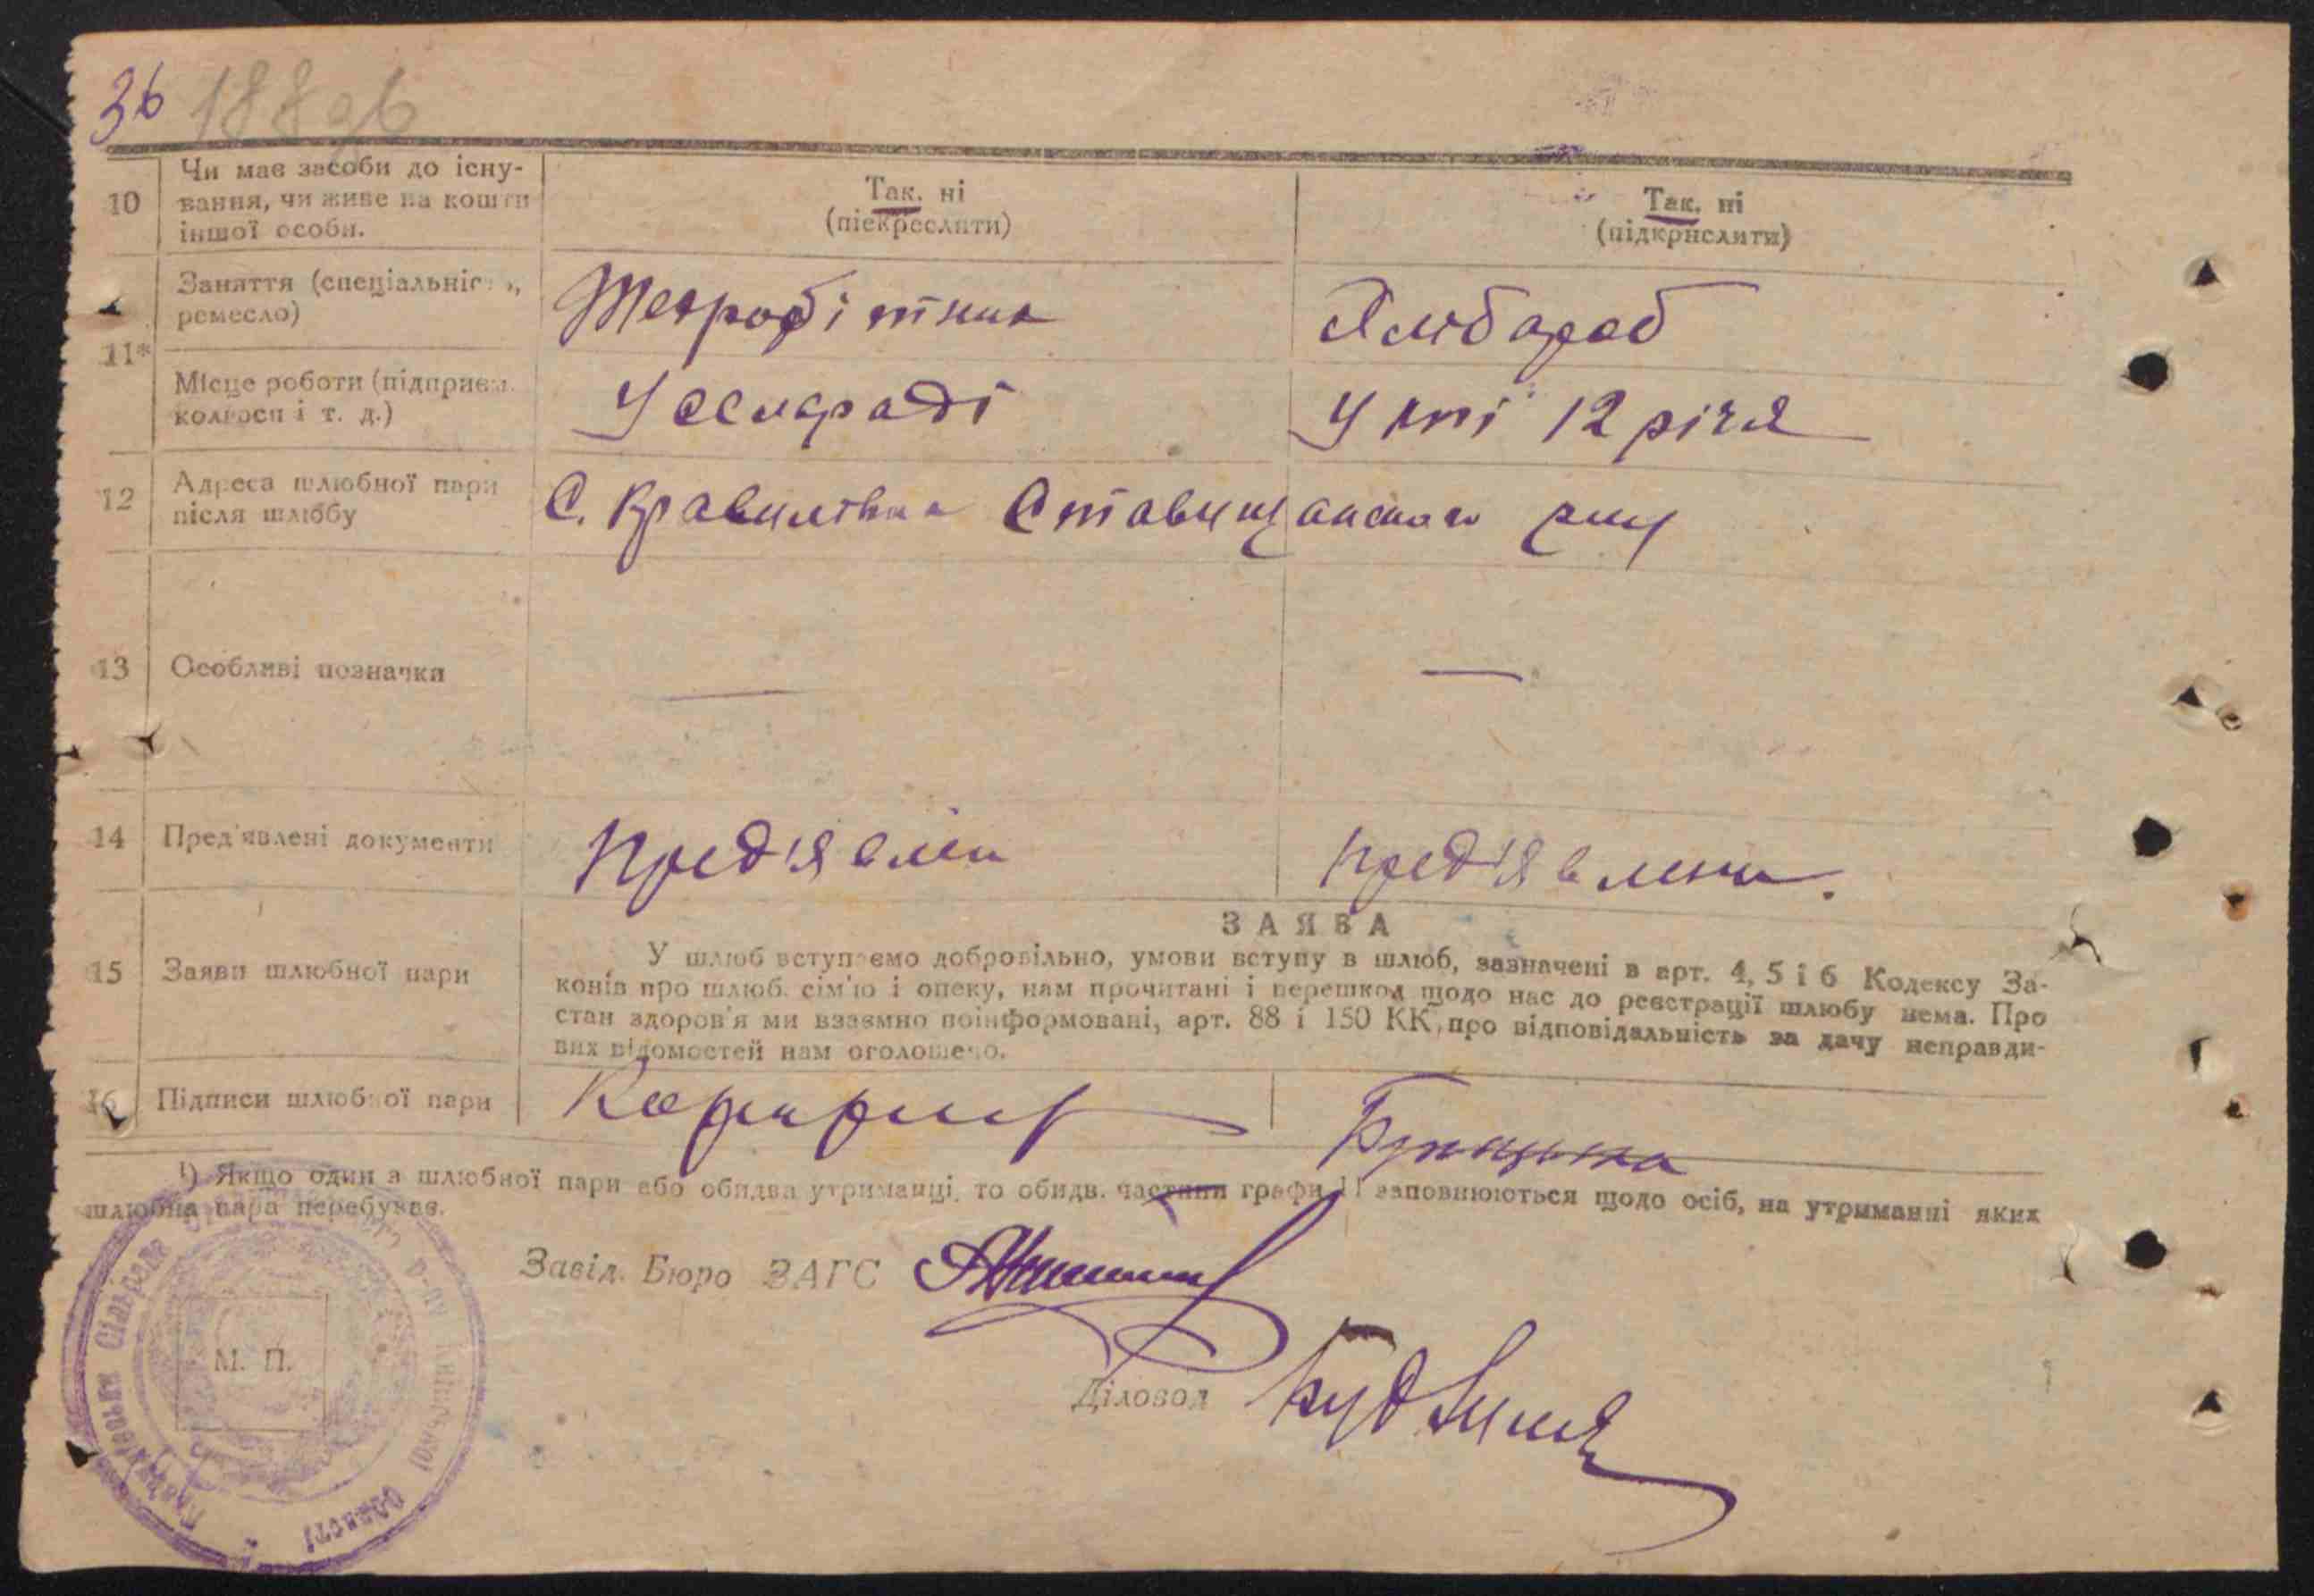 36 188 зв
10 Чи має засоби до існу-
вання, чи живе на кошти
іншої особи.
Так, ні
(піекреслити)
Так, ні
(підкрислити)
11*
Заняття (спеціальніс ь,
ремесло)
Техробітник
Хлібороб
Місце роботи (підприєм.
колгосп і т. д.)
У сельраді
У кті 12 річя
12 Адреса шлюбної пари
після шлюбу
С. Станищанського р-ну
13 Особливі позначки
— —
14 Пред'явлені документи
пред'явлені
пред'явлени.
ЗАЯВА
15 Заяви шлюбної пари
У шлюб вступаємо добровільно, умови вступу в шлюб, зазначені в арт. 4, 5 і 6 Кодексу За-
конів про шлюб. сім'ю і опеку, нам прочитані і перешкод щодо нас до реєстрації шлюбу нема. Про
стан здоров'я ми взаємно поінформовані, арт. 88 і 150 КК, про відповідальність за дачу неправди-
вих відомостей нам оголошено.
16 Підписи шлюбної пари
¹) Якщо один з шлюбної пари або обидва утриманці, то обидв. частини графи 11 заповнюються щодо осіб, на утриманні яких
шлюбна пара перебуває.
Завід. Бюро ЗАГС
М. П.
Діловод
Сільради р-ну Київської області